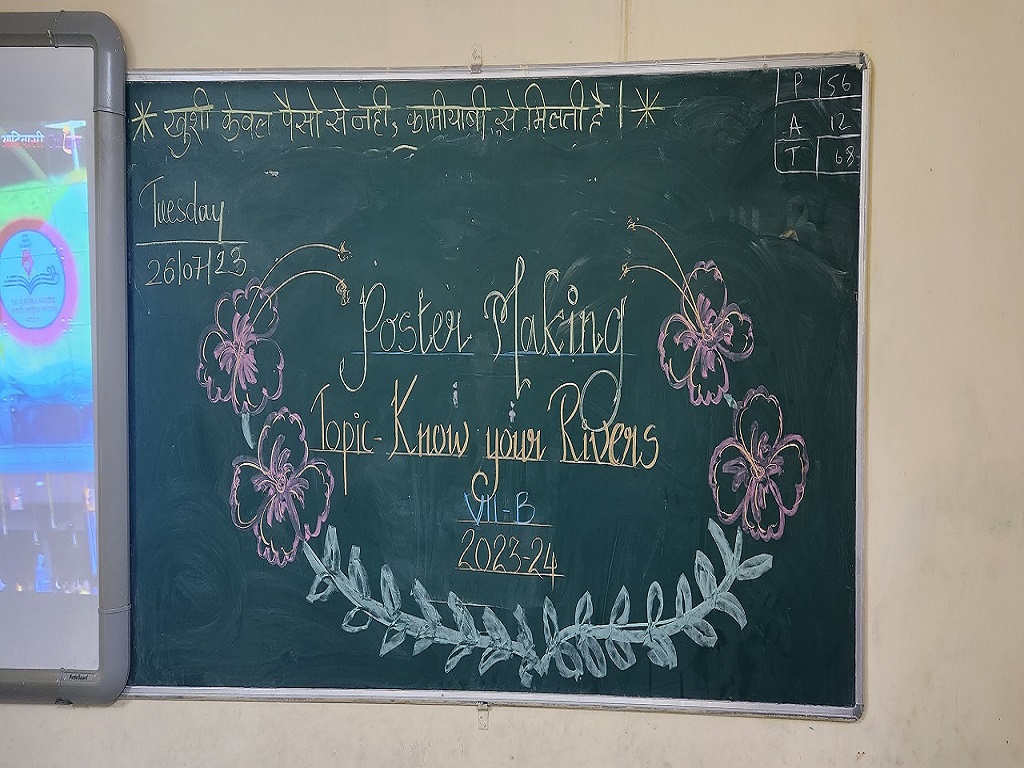 * खुशी केवल पैसो से नही, कामीयाबी से मिलती है । *
P 56
A 12
T 68
Tuesday
26/07/23
Poster Making
Topic - Know your Rivers
VII-B
2023-24
आदिवासी